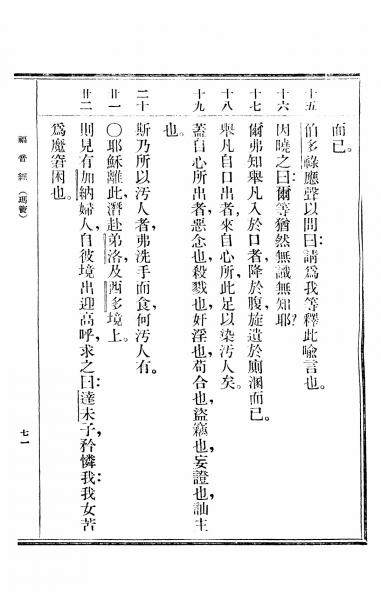 而已。
十五 伯多祿應聲以問曰：請爲我等釋此喩言也。
十六 因曉之曰：爾等猶然無識無知耶？
十七 爾弗知舉凡入於口者，降於腹，旋遺於廁溷而已。
十八 舉凡自口出者，來自心所，此足以染汚人矣。
十九 蓋自心所出者，惡念也，殺戮也，奸淫也，苟合也，盜竊也，妄證也，訕主
也。
二十 斯乃所以汚人者，弗洗手而食，何汚人有。
廿一 〇耶穌離此，潛赴弟洛及西多境上。
廿二 則見有加納婦人，自彼境出迎高呼，求之曰：達未子矜憐我：我女苦
爲魔窘困也。
福音經（瑪竇）
七一